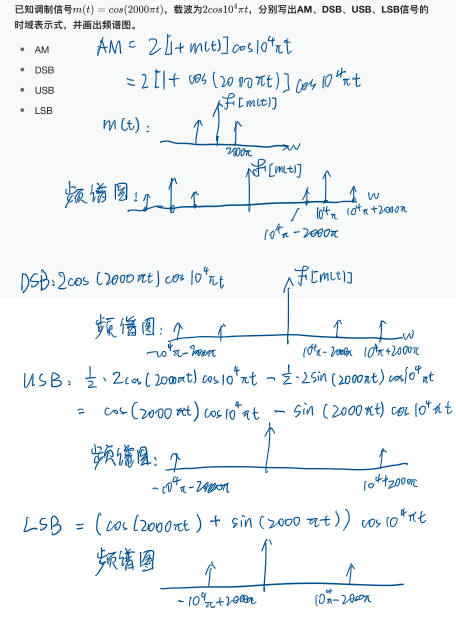 已知调制信号m(t) = cos(2000πt)，载波为2cos10⁴πt，分别写出AM、DSB、USB、LSB信号的
时域表示式，并画出频谱图。
• AM
• DSB
• USB
• LSB
AM = 2[1+m(t)]cos10⁴πt
= 2[1+ cos(2000πt)] cos10⁴πt
m(t):
F[m(t)]
2000π
w
频谱图:
F[m(t)]
w
10⁴π-2000π
10⁴π
10⁴π+2000π
DSB: 2cos(2000πt)cos10⁴πt
F[m(t)]
频谱图:
w
-10⁴π-2000π
10⁴π-2000π
10⁴π+2000π
USB: ½·2cos(2000πt)cos10⁴πt - ½·2sin(2000πt)cos10⁴πt
= cos(2000πt)cos10⁴πt - sin(2000πt)cos10⁴πt
频谱图:
-10⁴π-2000π
10⁴+2000π
LSB = (cos(2000πt) + sin(2000πt)) cos10⁴πt
频谱图
-10⁴π+2000π
10⁴π-2000π